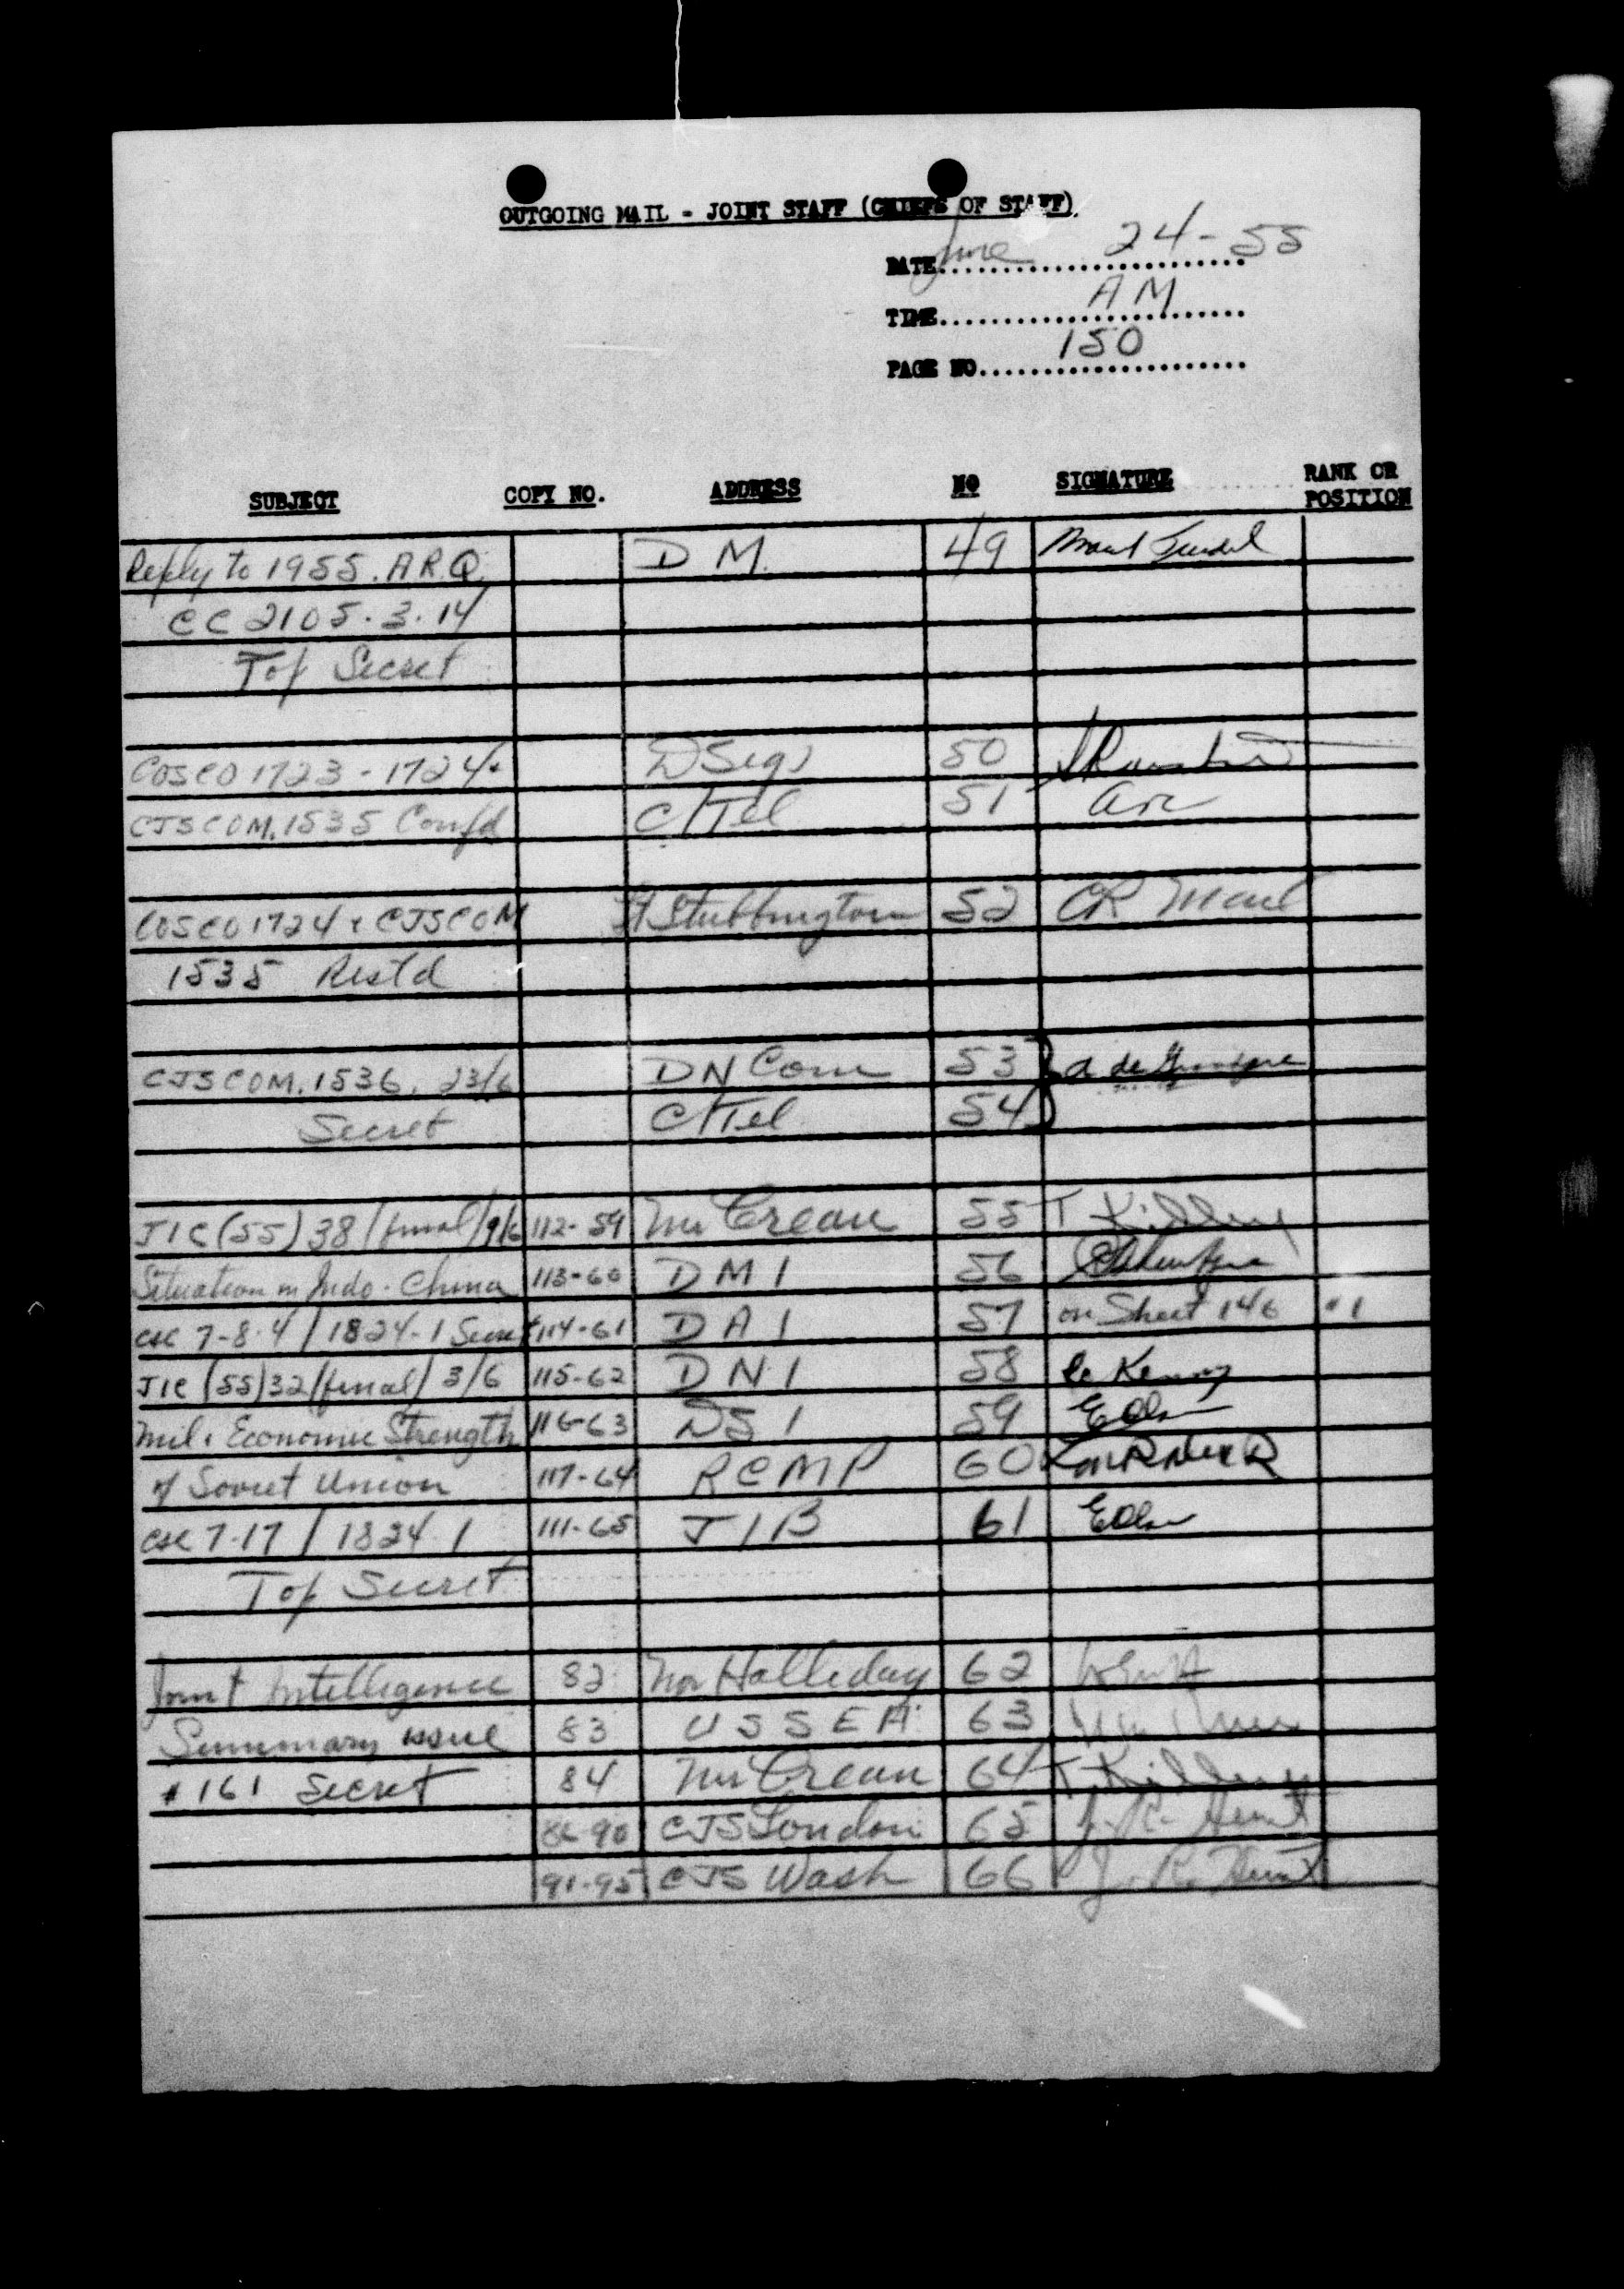 OUTGOING MAIL - JOINT STAFF (CHIEFS OF STAFF)
DATE June 24-55
TIME AM
PAGE NO 150
SUBJECT COPY NO. ADDRESS NO SIGNATURE RANK OR POSITION
Reply to 1955. A.R.Q. D M. 49
CC 2105.3.14
Top Secret
COSCO 1723 - 1724. D Sigs 50
CJSCOM. 1535 Confd C/Tel 51
COSCO 1724 + CJSCOM 52 CR
1535 Restd
CJSCOM. 1536. 23/6 DN Com 53 a de
Secret C/Tel 54
JIC (55) 38 /final/ 9/6 112-59 Mr Crean 55 T
Situation in Indo-China 113-60 D M I 56
CSC 7-8-4 / 1824-1 Secret 114-61 D A I 57 on Sheet 146 #1
JIC (55) 32 /final/ 3/6 115-62 D N I 58
Mil. Economic Strength 116-63 D S I 59
of Soviet Union 117-64 RCMP 60
CSC 7-17 / 1824-1 111-65 J I B 61
Top Secret
Joint Intelligence 82 Mr Halliday 62
Summary issue 83 U S S E A 63
# 161 Secret 84 Mr Crean 64 T.
86-90 CJS London 65 J. R. Hunt
91-95 CJS Wash 66 J. R. Hunt